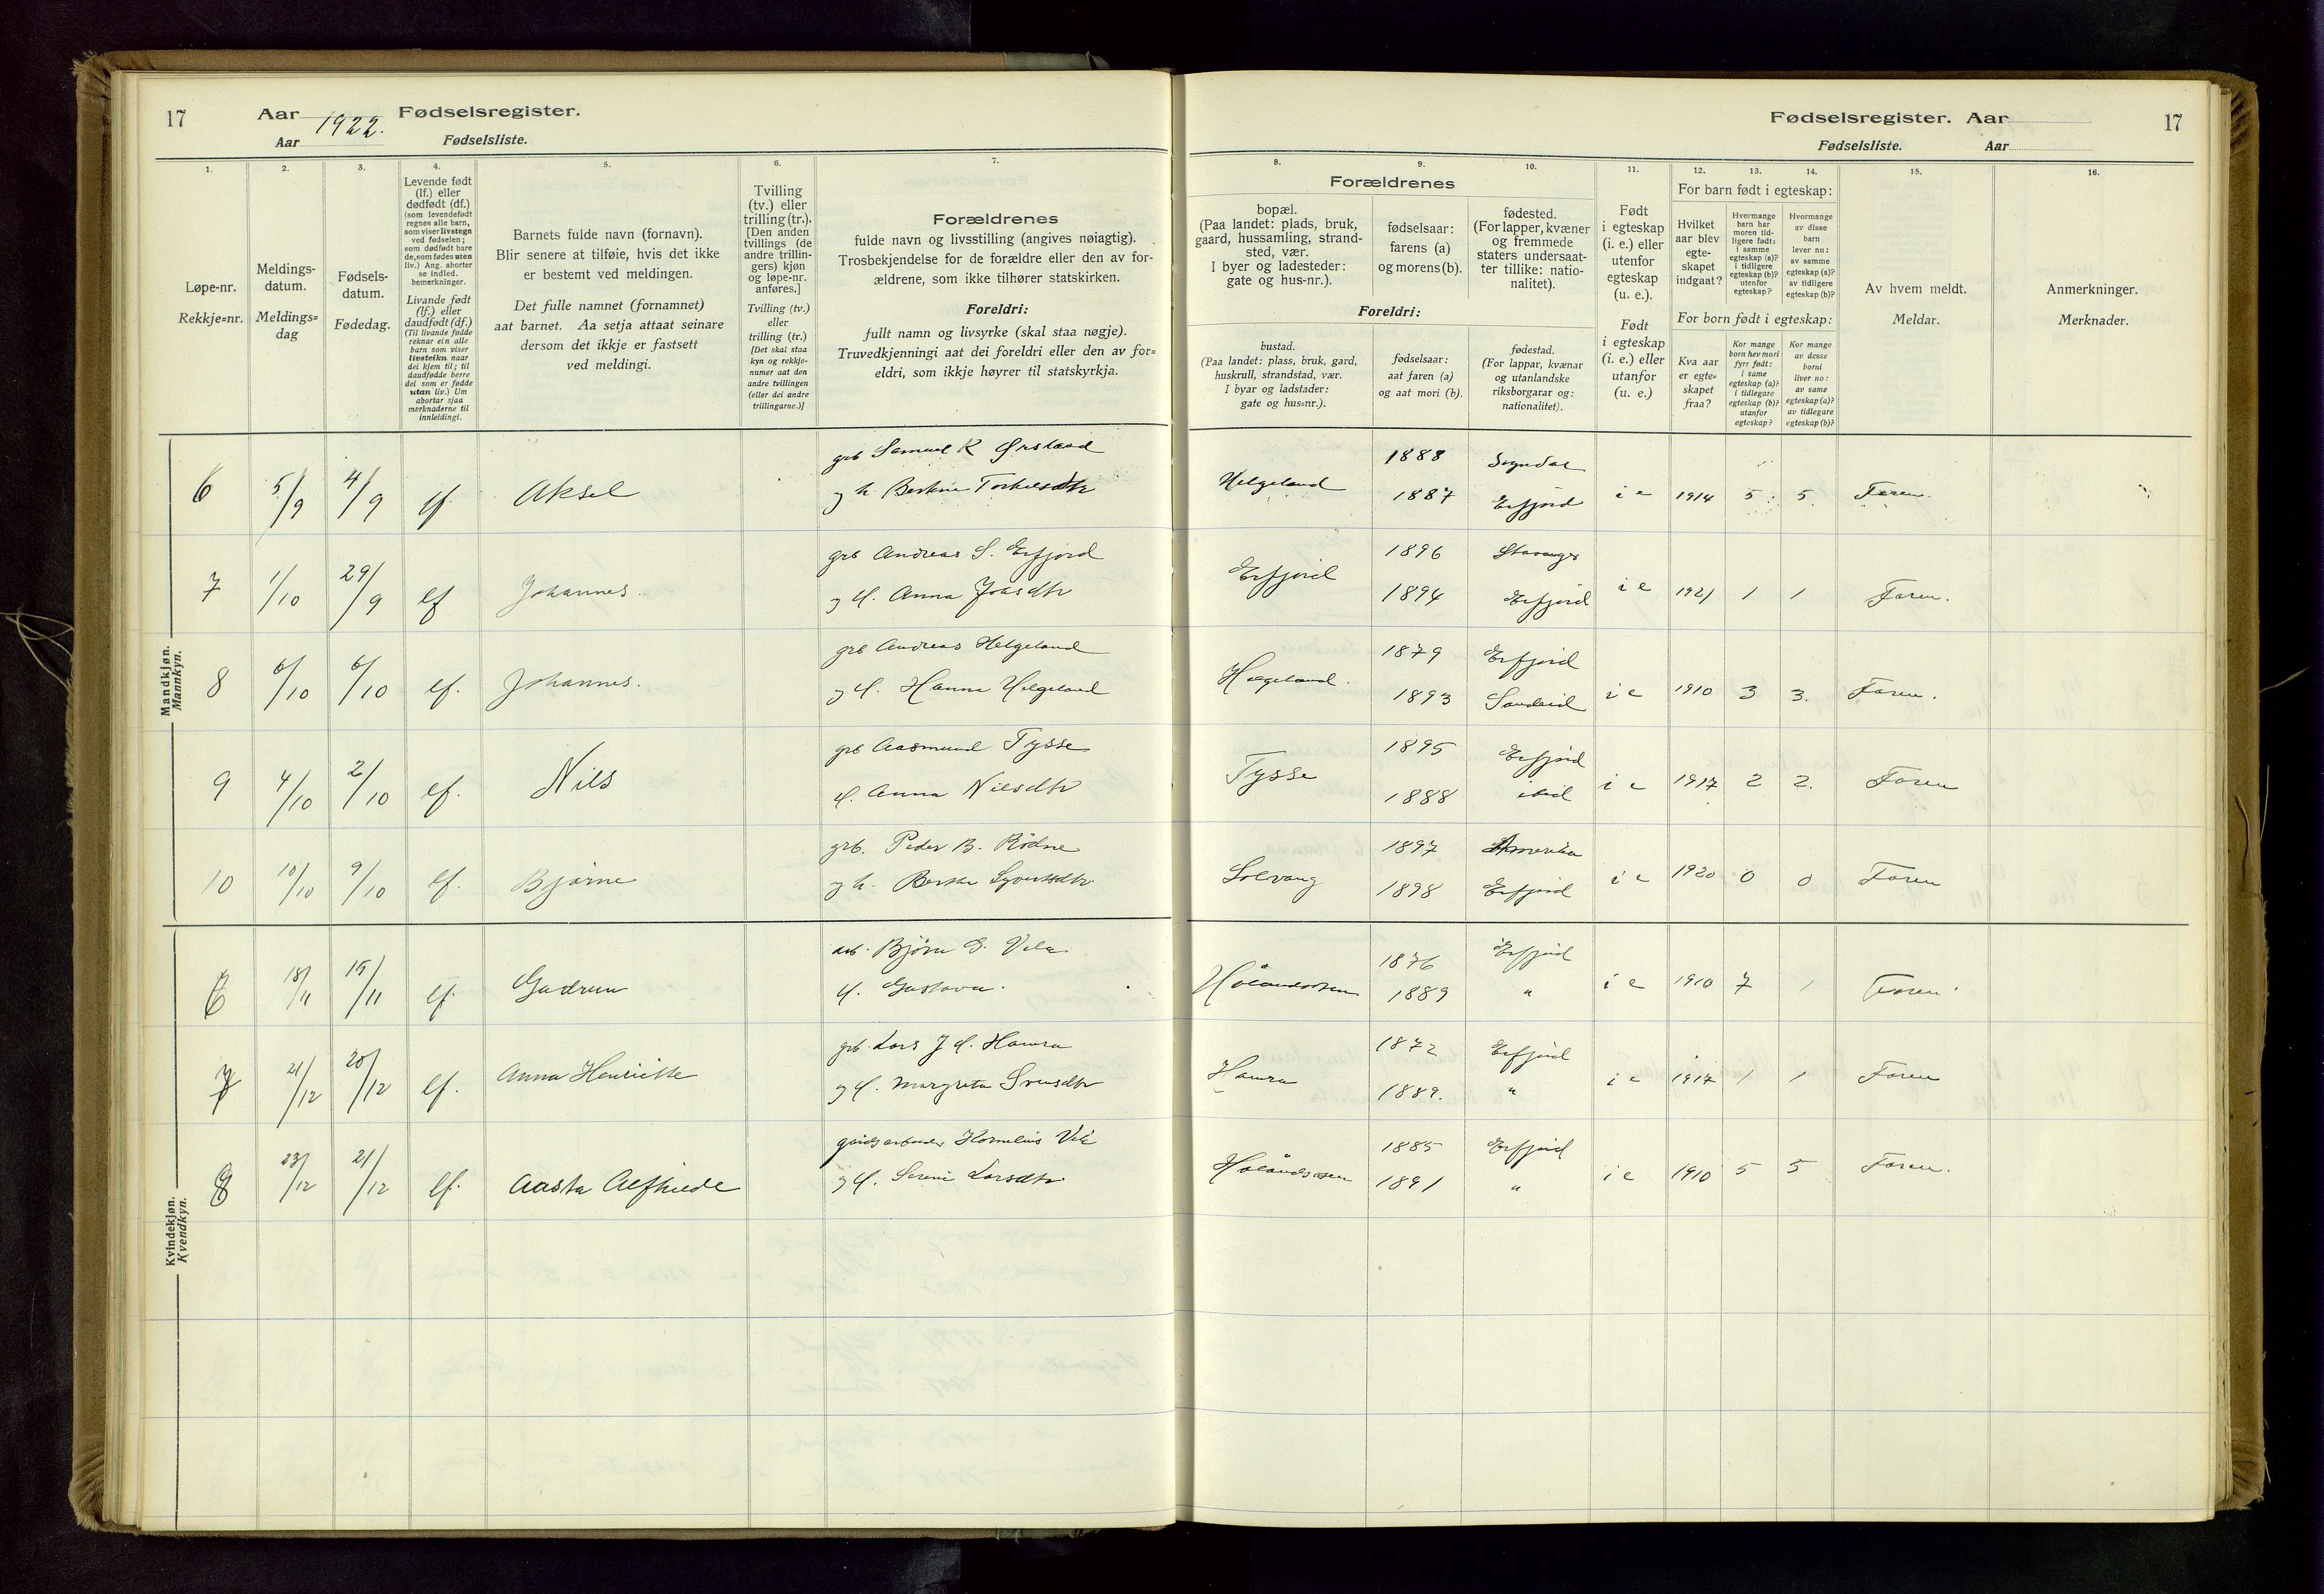 17 Aar 1922. Fødselsregister.
Aar Fødselsliste.
1. 2. 3. 4. 5. 6. 7.
Løpe-nr.
Rekkje=nr.
Meldings-
datum.
Meldings=
dag
Fødsels-
datum.
Fødedag.
Levende født
(lf.) eller
dødfødt (df.)
(som levendefødt
regnes alle barn,
som viser livstegn
ved fødselen;
som dødfødt bare
de, som fødes uten
liv.) Ang. aborter
se indled.
bemerkninger.
Livande født
(lf.) eller
daudfødt (df.)
(Til livande fødde
reknar ein alle
barn som viser
livsteikn naar
dei kjem til; til
daudfødde berre
dei som er fødde
utan liv.) Um
abortar sjaa
merknaderne til
innleidingi.
Barnets fulde navn (fornavn).
Blir senere at tilføie, hvis det ikke
er bestemt ved meldingen.
Det fulle namnet (fornamnet)
aat barnet. Aa setja attaat seinare
dersom det ikkje er fastsett
ved meldingi.
Tvilling
(tv.) eller
trilling (tr.).
[Den anden
tvillings (de
andre trillin-
gers) kjøn
og løpe-nr.
anføres.]
Tvilling (tv.)
eller
trilling (tr.)
[Det skal staa
kyn og rekkje-
numer aat den
andre tvillingen
(eller dei andre
trillingarne.)]
Forældrenes
fulde navn og livsstilling (angives nøiagtig).
Trosbekjendelse for de forældre eller den av for-
ældrene, som ikke tilhører statskirken.
Foreldri:
fullt namn og livsyrke (skal staa nøgje).
Truvedkjenningi aat dei foreldri eller den av for=
eldri, som ikkje høyrer til statskyrkja.
Mandkjøn.
Mannkyn.
6 5/9 4/9 lf. Aksel grb Samuel K Ørstavd
og h. Berthine Torkelsdtr
7 1/10 29/9 lf Johannes. grb Andreas S. Erfjord
og H. Anna Joasdtr
8 6/10 6/10 lf. Johannes. grb Andreas Helgeland
og H. Hanna Helgeland
9 4/10 2/10 lf. Nils grb Aasmund Tysse
H. Anna Nilsdtr
10 10/10 9/10 lf. Bjarne grb. Peder B. Rødne
og h. Berthe Syvertsdtr
Kvindekjøn.
Kvendkyn.
6 18/11 15/11 lf. Gudrun arb. Bjørn G. Vela
H. Gustava.
7 21/12 20/12 lf. Anna Henriette grb. Lars J H. Hamra
og H. Margreta Svensdtr
8 23/12 21/12 lf. Aasta Alfhilde gårdsarbeider Kornelius Vela
og H. Serine Larsdtr.
Fødselsregister. Aar 17
Fødselsliste. Aar
8. 9. 10. 11. 12. 13. 14. 15. 16.
Forældrenes
bopæl.
(Paa landet: plads, bruk,
gaard, hussamling, strand-
sted, vær.
I byer og ladesteder:
gate og hus-nr.).
fødselsaar:
farens (a)
og morens (b).
fødested.
(For lapper, kvæner
og fremmede
staters undersaat-
ter tillike: natio-
nalitet).
Foreldri:
bustad.
(Paa landet: plass, bruk, gard,
huskrull, strandstad, vær.
I byar og ladstader:
gate og hus=nr.).
fødselsaar:
aat faren (a)
og aat mori (b).
fødestad.
(For lappar, kvænar
og utanlandske
riksborgarar og:
nationalitet).
Født
i egteskap
(i. e.) eller
utenfor
egteskap
(u. e.).
Født
i egteskap
(i. e.) eller
utanfor
(u. e.)
For barn født i egteskap:
Hvilket
aar blev
egte-
skapet
indgaat?
Hvormange
barn har
moren tid-
ligere født:
i samme
egteskap (a)?
i tidligere
egteskap (b)?
utenfor
egteskap?
Hvormange
av disse
barn
lever nu:
av samme
egteskap (a)?
av tidligere
egteskap (b)?
For born født i egteskap:
Kva aar
er egte-
skapet
fraa?
Kor mange
born hev mori
fyrr født:
i same
egteskap (a)?
i tidlegare
egteskap (b)?
utanfor
egteskap?
Kor mange
av desse
borni
liver no:
av same
egteskap (a)?
av tidlegare
egteskap (b)?
Av hvem meldt.
Meldar.
Anmerkninger.
Merknader.
Helgeland 1888 Sogndal
1887 Erfjord i e 1914 5 5 Faren.
Erfjord 1896 Stavanger
1894 Erfjord i e 1921 1 1 Faren.
Helgeland. 1879 Erfjord
1893 Sandeid i e 1910 3 3. Faren.
Tysse 1895 Erfjord
1888 ibid i e 1917 2 2. Faren
Solvang 1897 Amerika
1898 Erfjord i e 1920 0 0 Faren
1876 Erfjord
1889 " i e 1910 7 1 Faren.
Hamra 1872 Erfjord
1889. " i e 1917 1 1 Faren
1885 Erfjord
1891 " i e 1910 5 5 Faren.